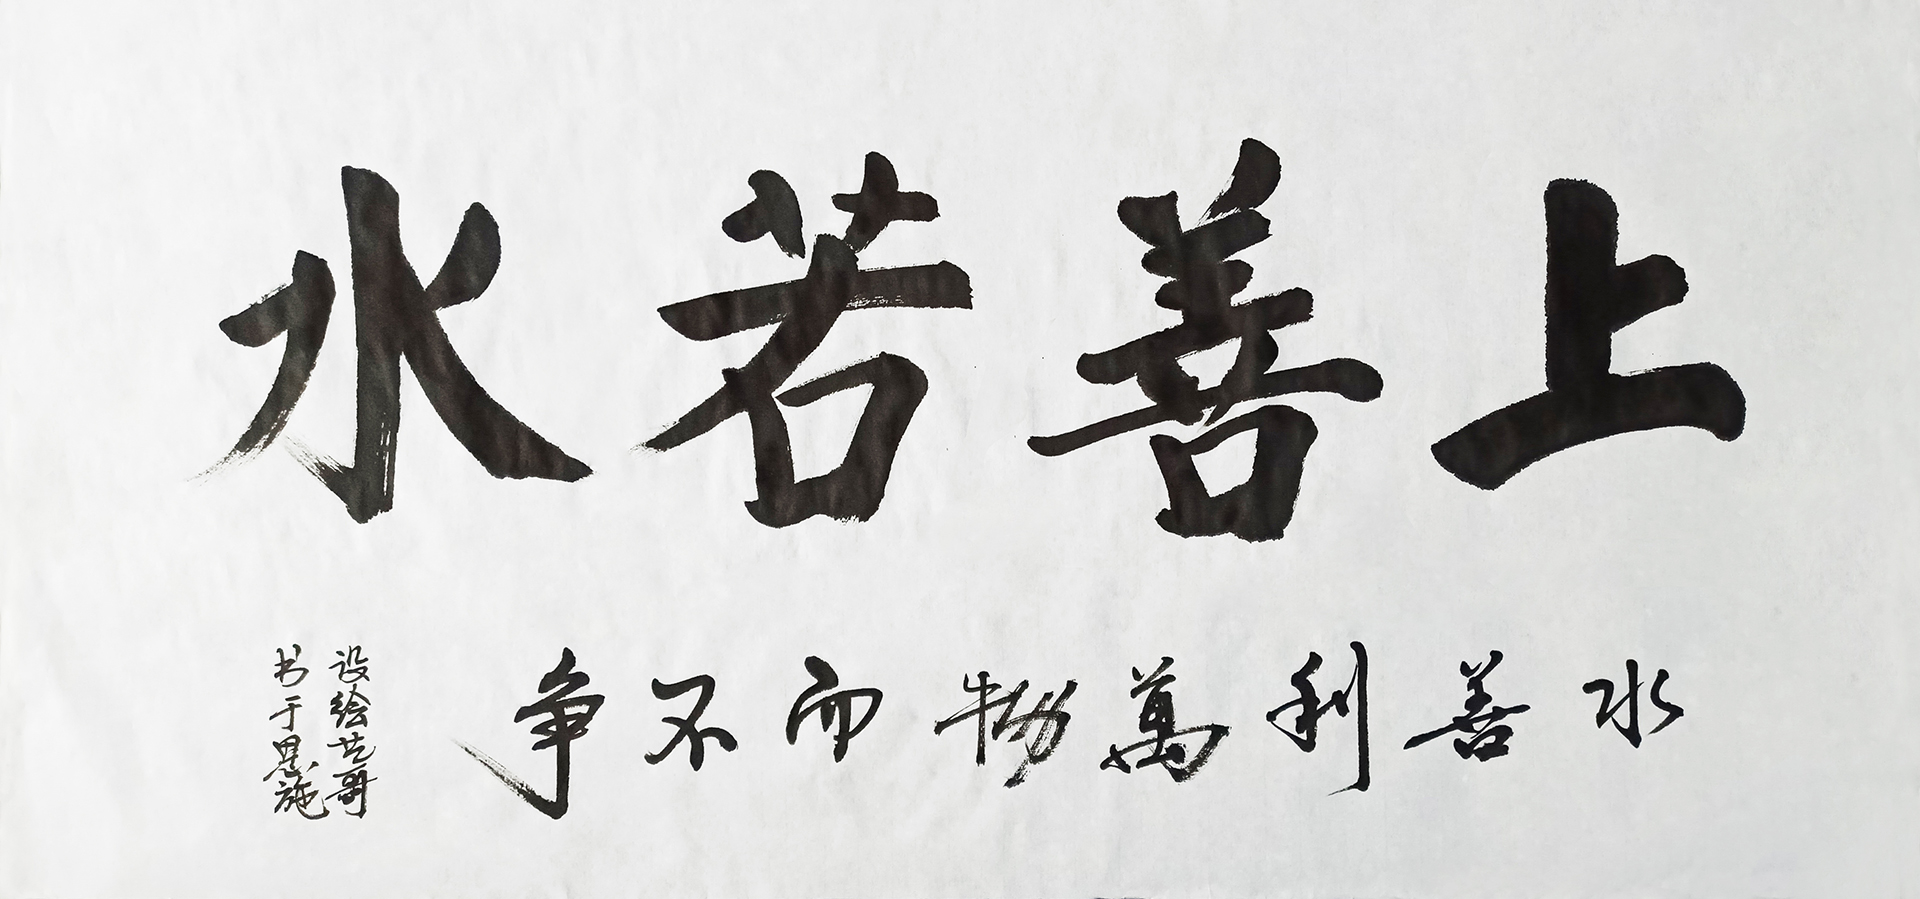 上善若水
水善利萬物而不争
设绘艺哥
书于恩施